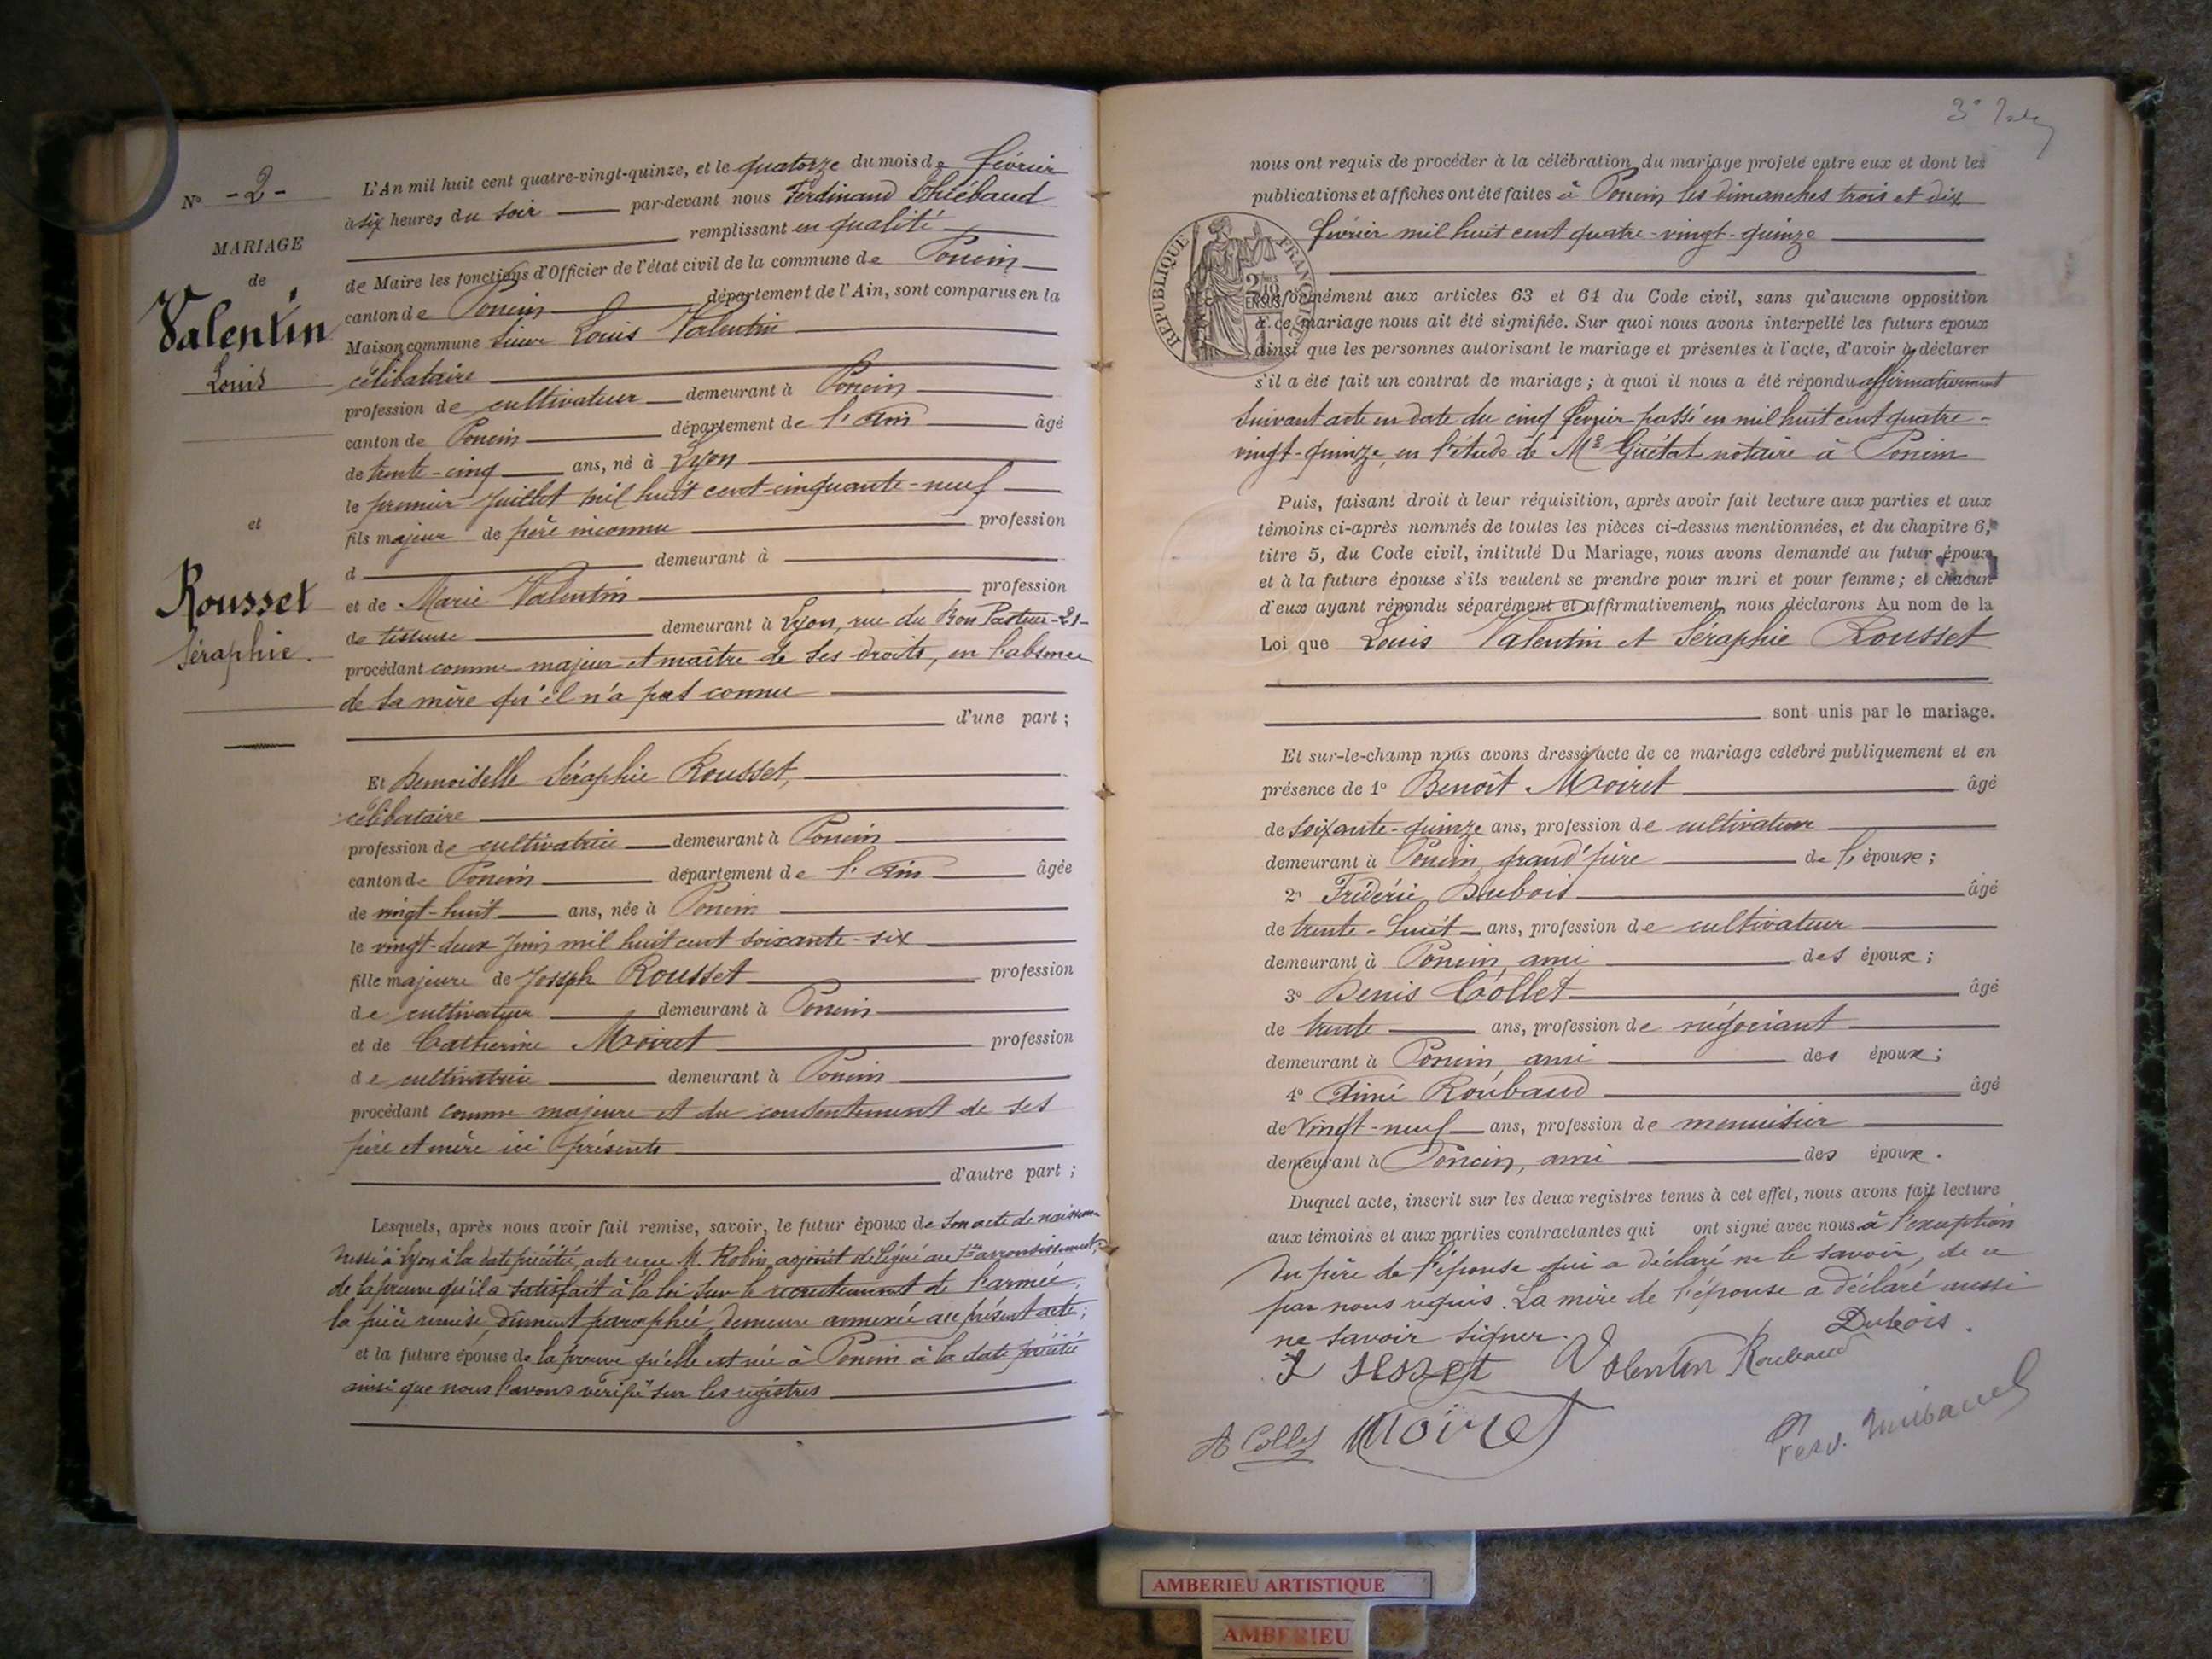 N° - 2 -
MARIAGE
de
Valentin
Louis
et
Rousset
Séraphie.
L'An mil huit cent quatre-vingt-quinze, et le quatorze du mois de février
à six heures du soir par-devant nous Ferdinand Thiébaud
remplissant en qualité
de Maire les fonctions d'Officier de l'état civil de la commune de Poncin
canton de Poncin département de l'Ain, sont comparus en la
Maison commune sieur Louis Valentin
célibataire
profession de cultivateur demeurant à Poncin
canton de Poncin département de l'Ain âgé
de trente-cinq ans, né à Lyon
le premier Juillet mil huit cent cinquante-neuf
fils majeur de père inconnu profession
d demeurant à
et de Marie Valentin profession
de tisseuse demeurant à Lyon, rue du Bon Pasteur-21-
procédant comme majeur et maître de ses droits, en l'absence
de sa mère qu'il n'a pas connu
d'une part ;
Et Demoiselle Séraphie Rousset,
célibataire
profession de cultivatrice demeurant à Poncin
canton de Poncin département de l'Ain âgée
de vingt-huit ans, née à Poncin
le vingt-deux Juin mil huit cent soixante-six
fille majeure de Joseph Rousset profession
de cultivateur demeurant à Poncin
et de Catherine Moiret profession
de cultivatrice demeurant à Poncin
procédant comme majeure et du consentement de ses
père et mère ici présents
d'autre part ;
Lesquels, après nous avoir fait remise, savoir, le futur époux de son acte de naissance
dressé à Lyon à la date précitée, acte reçu M. Robin adjoint délégué au 1er arrondissement,
de la preuve qu'il a satisfait à la loi sur le recrutement de l'armée,
la pièce remise, dûment paraphée, demeure annexée au présent acte ;
et la future épouse de la preuve qu'elle est née à Poncin à la date précitée
ainsi que nous l'avons vérifié sur les registres
3e
nous ont requis de procéder à la célébration du mariage projeté entre eux et dont les
publications et affiches ont été faites à Poncin les dimanches trois et dix
février mil huit cent quatre-vingt-quinze
RÉPUBLIQUE FRANÇAISE
conformément aux articles 63 et 64 du Code civil, sans qu'aucune opposition
à ce mariage nous ait été signifiée. Sur quoi nous avons interpellé les futurs époux
ainsi que les personnes autorisant le mariage et présentes à l'acte, d'avoir à déclarer
s'il a été fait un contrat de mariage ; à quoi il nous a été répondu affirmativement
suivant acte en date du cinq février passé en mil huit cent quatre-
vingt-quinze, en l'étude de Me Guétat notaire à Poncin
Puis, faisant droit à leur réquisition, après avoir fait lecture aux parties et aux
témoins ci-après nommés de toutes les pièces ci-dessus mentionnées, et du chapitre 6,
titre 5, du Code civil, intitulé Du Mariage, nous avons demandé au futur époux
et à la future épouse s'ils veulent se prendre pour mari et pour femme ; et chacun
d'eux ayant répondu séparément et affirmativement, nous déclarons Au nom de la
Loi que Louis Valentin et Séraphie Rousset
sont unis par le mariage.
Et sur-le-champ nous avons dressé acte de ce mariage célébré publiquement et en
présence de 1° Benoît Moiret âgé
de soixante-quinze ans, profession de cultivateur
demeurant à Poncin, grand'père de l'épouse ;
2° Frédéric Dubois âgé
de trente-huit ans, profession de cultivateur
demeurant à Poncin, ami des époux ;
3° Denis Collet âgé
de trente ans, profession de négociant
demeurant à Poncin, ami des époux ;
4° Aimé Roubaud âgé
de vingt-neuf ans, profession de menuisier
demeurant à Poncin, ami des époux.
Duquel acte, inscrit sur les deux registres tenus à cet effet, nous avons fait lecture
aux témoins et aux parties contractantes qui ont signé avec nous à l'exception
du père de l'épouse qui a déclaré ne le savoir, de ce
par nous requis. La mère de l'épouse a déclaré aussi
ne savoir signer.
Dubois.
Valentin Roubaud
Collet Moiret
AMBERIEU ARTISTIQUE
AMBERIEU